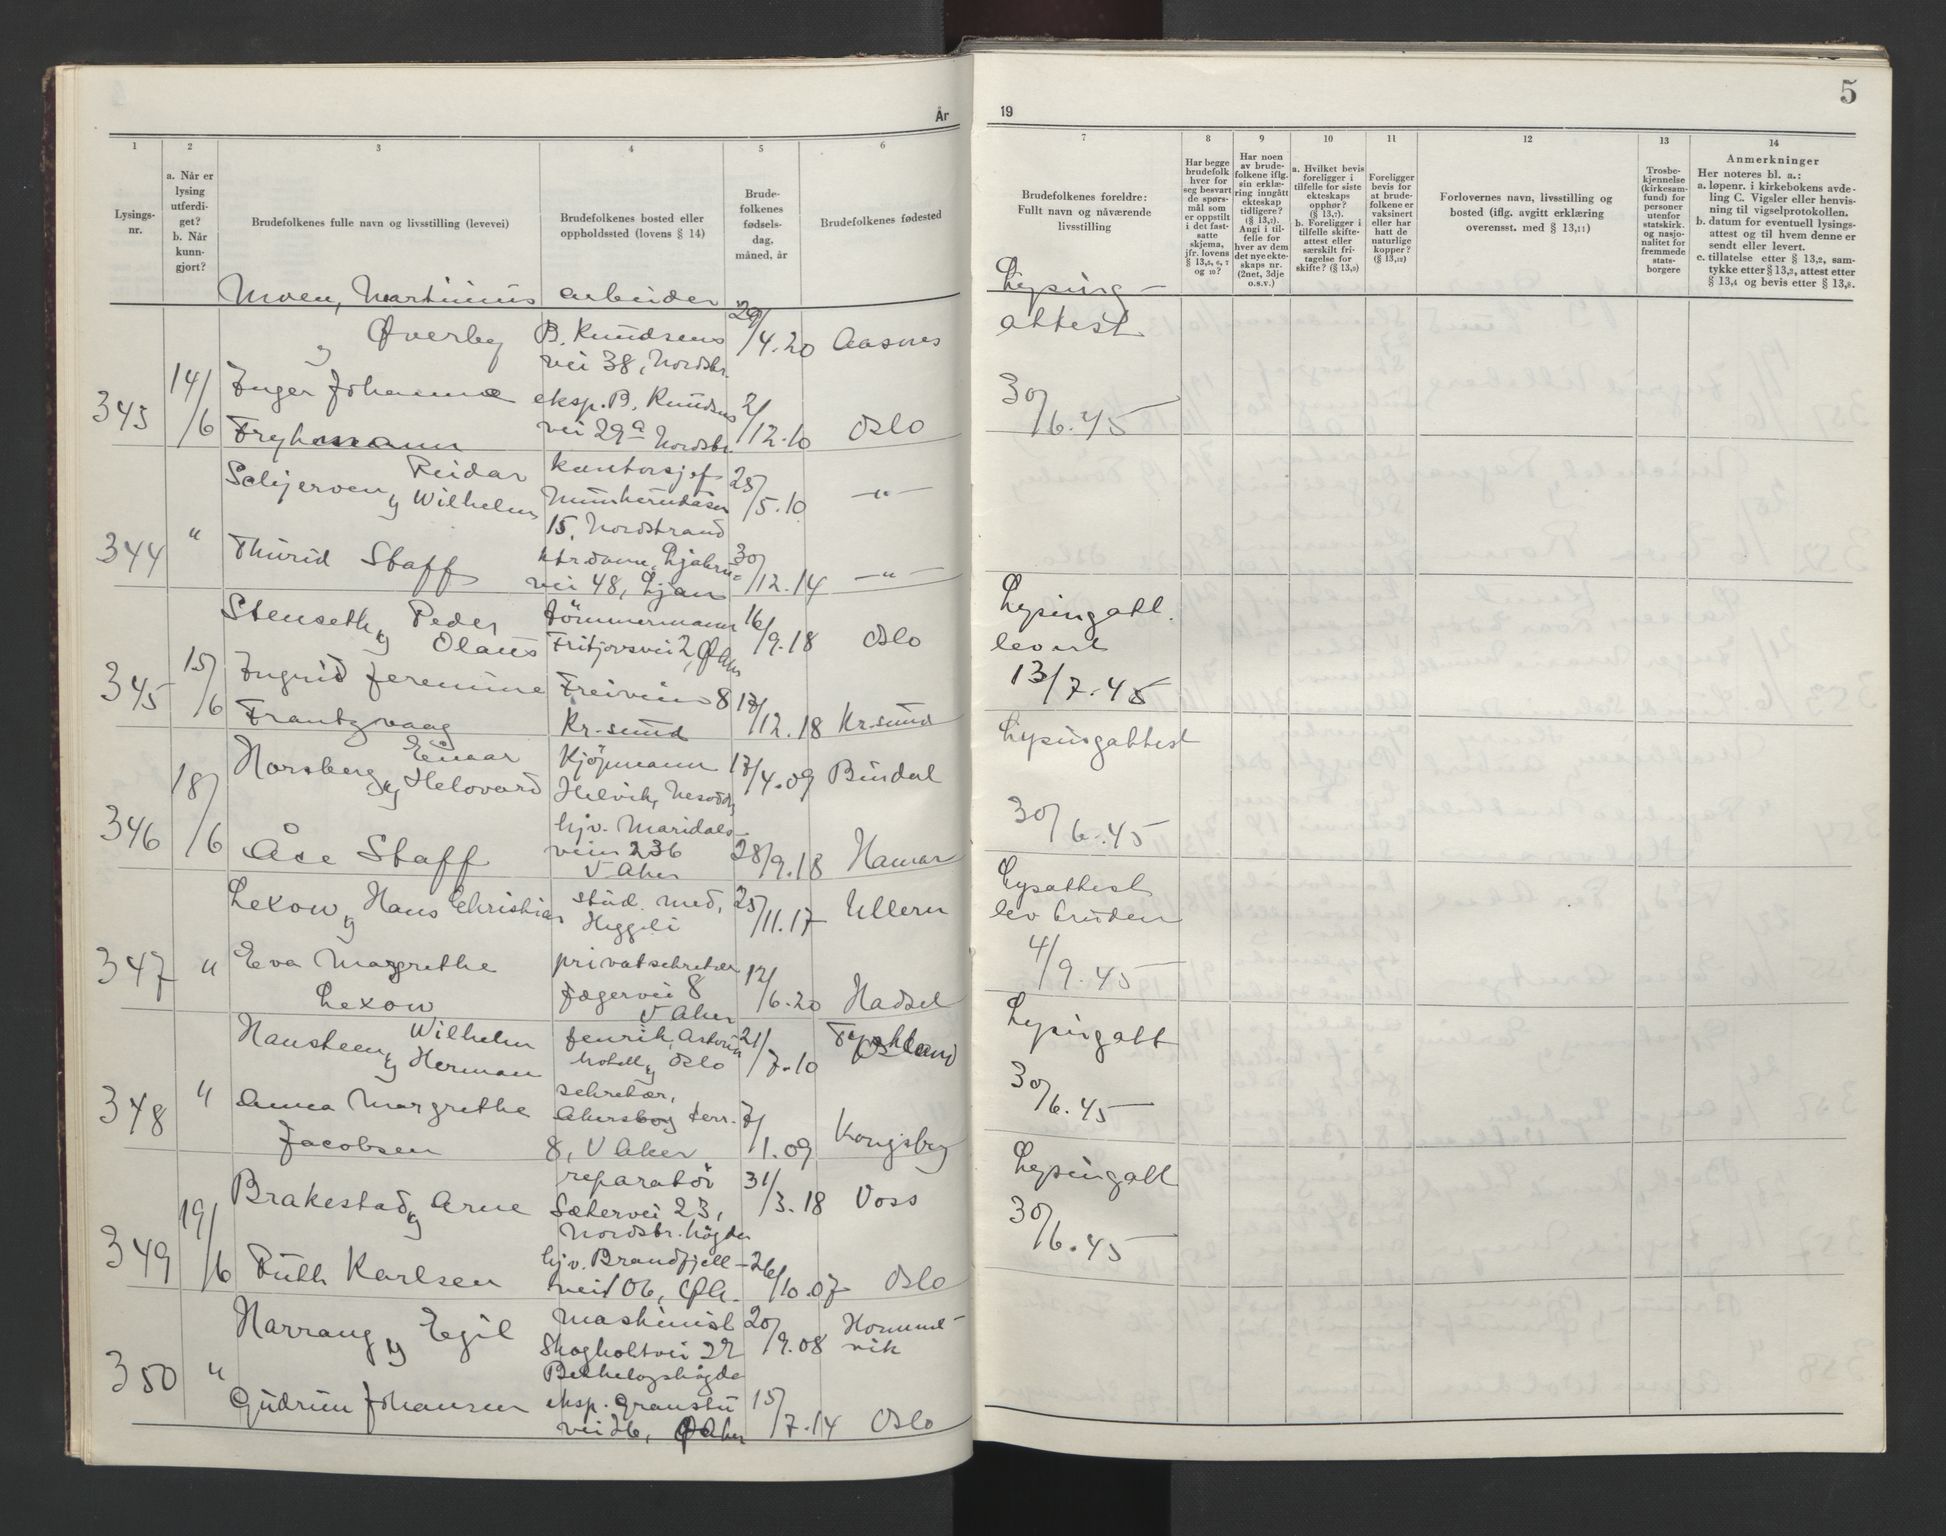 År
1 2 3 4 5 6
Lysings-
nr.
a. Når er
lysing
utferdi-
get?
b. Når
kunn-
gjort?
Brudefolkenes fulle navn og livsstilling (levevei)
Brudefolkenes bosted eller
oppholdssted (lovens § 14)
Brude-
folkenes
fødsels-
dag,
måned, år
Brudefolkenes fødested
Moen, Martinius arbeider 29/4.20
Øverby B. Knudsens Aasnes
y vei 38, Nordstr.
343 14/6 Inger Johanne eksp. B. Knudsens 2/12.10
Fryhmann vei 29a Nordstr. Oslo
Schjerven, Reidar kontorsjef 25/5.10 —"—
y Wilhelm Munkerudåsen
15, Nordstrand
344 " Thurid Staff ktrdame, Ljabru- 30/12.14 —"—
vei 48, Ljan
Stenseth, Peder tömmermann 16/9.18 Oslo
y Olaus Fritjovsvei 2, ØAker
345 15/6 Ingrid Jeremine Freiveien 8 17/12.18 Kr.sund
Frantzvaag Kr.sund
Horsberg, Einar Kjöpmann 17/4.09 Bindal
y Helovard Helvik, Nesodd.
346 18/6 hjv. Maridals-
Åse Staff veien 236 28/9.18 Hamar
V Aker
Lexow, Hans Christian stud. med, 25/11.17 Ullern
y Heggeli
347 " Eva Margrethe privatsekretær 12/6.20 Hadsel
Lexow Jægervei 8
V Aker
Hansteen, Wilhelm fenrik, Astoria 21/7.10 Tyskland
y Herman hotell, Oslo
348 " Anna Margrethe sekretær,
Akersborg terr. 7/1.09 Kongsberg
Jacobsen 8, V Aker
Brakestad, Arne reparatör 31/3.18 Voss
y Sætervei 23,
Nordstr. högda
349 19/6 Ruth Karlsen hjv. Brandfjell- 26/10.07 Oslo
vei 106, ØA.
Harrang, Egil maskinist 20/9.08 Hommel-
y Skogholtvei 22 vik
Bekkelagshögda
350 " Gudrun Johansen eksp. Granstu 15/7.14 Oslo
vei 26, ØAker
19
5
7 8 9 10 11 12 13 14
Brudefolkenes foreldre:
Fullt navn og nåværende
livsstilling
Har begge
brudefolk
hver for
seg besvart
de spørs-
mål som
er oppstilt
i det fast-
satte
skjema,
jfr. lovens
§ 13,5, 6, 7
og 10?
Har noen
av brude-
folkene iflg.
sin erklæ-
ring inngått
ekteskap
tidligere?
(§ 13,7).
Angi i til-
felle for
hver av dem
det nye ekte-
skaps nr.
(2net, 3dje
o.s.v.)
a. Hvilket bevis
foreligger i
tilfelle for siste
ekteskaps
opphør?
(§ 13,7).
b. Foreligger i
tilfelle skifte-
attest eller
særskilt fri-
tagelse for
skifte? (§ 13,9)
Foreligger
bevis for
at brude-
folkene er
vaksinert
eller har
hatt de
naturlige
kopper?
(§ 13,12)
Forlovernes navn, livsstilling og
bosted (iflg. avgitt erklæring
overensst. med § 13,11)
Trosbe-
kjennelse
(kirkesam-
fund) for
personer
utenfor
statskirk.
og nasjo-
nalitet for
fremmede
stats-
borgere
Anmerkninger
Her noteres bl. a.:
a. løpenr. i kirkebokens avde-
ling C. Vigsler eller henvis-
ning til vigselprotokollen.
b. datum for eventuell lysings-
attest og til hvem denne er
sendt eller levert.
c. tillatelse etter § 13,2, sam-
tykke etter § 13,3, attest etter
§ 13,4 og bevis etter § 13,8.
Lysing-
attest
30/6.45
Lysingatt.
levert
13/7.45
Lysingattest
30/6.45
Lysattest
lev bruden
4/9.45
Lysingatt
30/6.45
Lysingatt
30/6.45